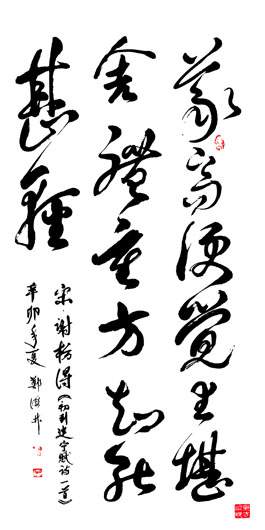 義高便覺生堪
舍禮重方知死
甚輕
宋·謝枋得《初到建宁賦诗一首》
辛卯年夏 鄭